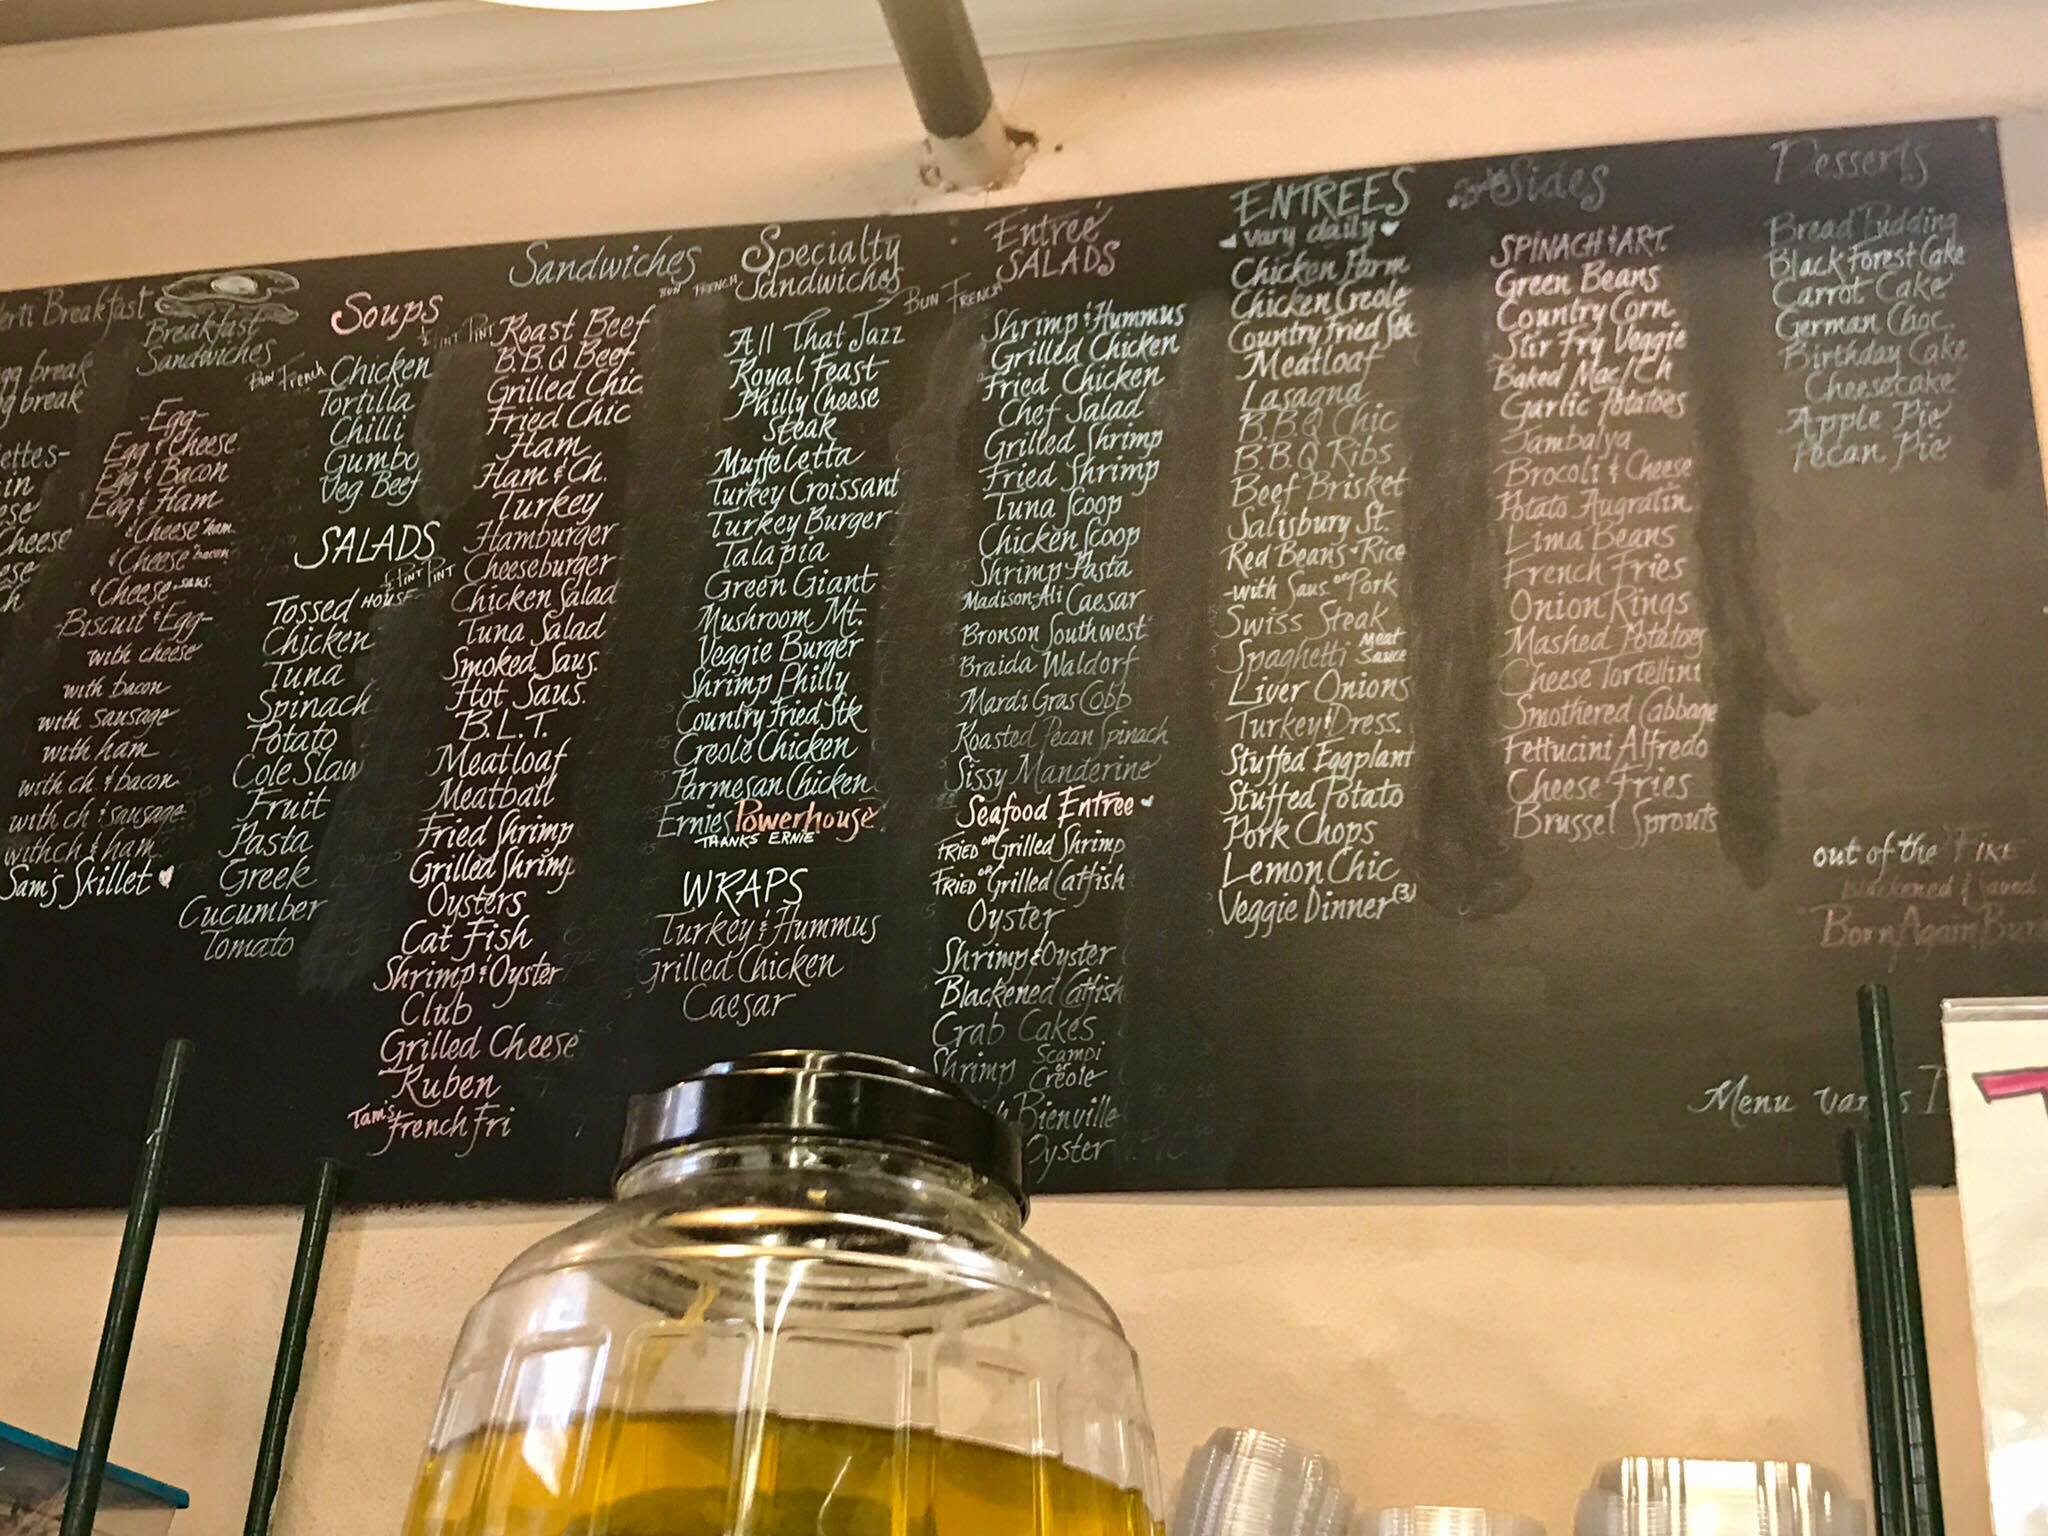 Breakfast
gg break
g break
ettes-
in
ese
Cheese
ese
h
Breakfast
Sandwiches
Bun French
-Egg-
Egg & Cheese
Egg & Bacon
Egg & Ham
& Cheese ham
& Cheese bacon
& Cheese saus.
-Biscuit & Egg-
with cheese
with bacon
with sausage
with ham
with ch & bacon
with ch & sausage
with ch & ham
Sam's Skillet
Soups
½ PINT PINT
Chicken
Tortilla
Chilli
Gumbo
Veg Beef
SALADS
½ PINT PINT
Tossed HOUSE
Chicken
Tuna
Spinach
Potato
Cole Slaw
Fruit
Pasta
Greek
Cucumber
Tomato
Sandwiches
BUN FRENCH
Roast Beef
B.B.Q Beef
Grilled Chic
Fried Chic
Ham
Ham & Ch.
Turkey
Hamburger
Cheeseburger
Chicken Salad
Tuna Salad
Smoked Saus.
Hot Saus.
B.L.T.
Meatloaf
Meatball
Fried Shrimp
Grilled Shrimp
Oysters
Cat Fish
Shrimp & Oyster
Club
Grilled Cheese
Ruben
Tam's French Fri
Specialty
Sandwiches
BUN FRENCH
All That Jazz
Royal Feast
Philly Cheese
Steak
Muffeletta
Turkey Croissant
Turkey Burger
Talapia
Green Giant
Mushroom Mt.
Veggie Burger
Shrimp Philly
Country Fried Stk
Creole Chicken
Parmesan Chicken
Ernies Powerhouse
THANKS ERNIE
WRAPS
Turkey & Hummus
Grilled Chicken
Caesar
Entreé
SALADS
Shrimp & Hummus
Grilled Chicken
Fried Chicken
Chef Salad
Grilled Shrimp
Fried Shrimp
Tuna Scoop
Chicken Scoop
Shrimp Pasta
Madison-Ali Caesar
Bronson Southwest
Braida Waldorf
Mardi Gras Cobb
Roasted Pecan Spinach
Sissy Manderine
Seafood Entree
FRIED OR Grilled Shrimp
FRIED OR Grilled Catfish
Oyster
Shrimp & Oyster
Blackened Catfish
Crab Cakes
Shrimp Scampi or Creole
h Bienville
Oyster
ENTREES
vary daily
Chicken Parm
Chicken Creole
Country Fried Stk
Meatloaf
Lasagna
B.B.Q Chic
B.B.Q Ribs
Beef Brisket
Salisbury St.
Red Beans & Rice
-with Saus or Pork
Swiss Steak
Spaghetti Meat Sauce
Liver Onions
Turkey & Dress.
Stuffed Eggplant
Stuffed Potato
Pork Chops
Lemon Chic
Veggie Dinner (3)
Sides
SPINACH & ART.
Green Beans
Country Corn
Stir Fry Veggie
Baked Mac/Ch
Garlic Potatoes
Jambalya
Brocoli & Cheese
Potato Augratin
Lima Beans
French Fries
Onion Rings
Mashed Potatoes
Cheese Tortellini
Smothered Cabbage
Fettucini Alfredo
Cheese Fries
Brussel Sprouts
Desserts
Bread Pudding
Black Forest Cake
Carrot Cake
German Choc.
Birthday Cake
Cheesecake
Apple Pie
Pecan Pie
out of the FIRE
Blackened & Saved
Born Again Bur
Menu var s D